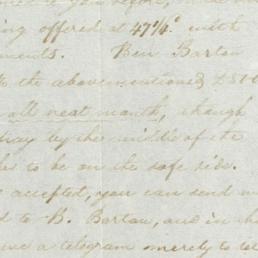 ing offered at 47¼c with
ments. Ben Barton
the above mentioned
all next month, though
day by the middle of the
to be on the safe side.
accepted, you can send
to B. Barton, and in
a telegram merely to